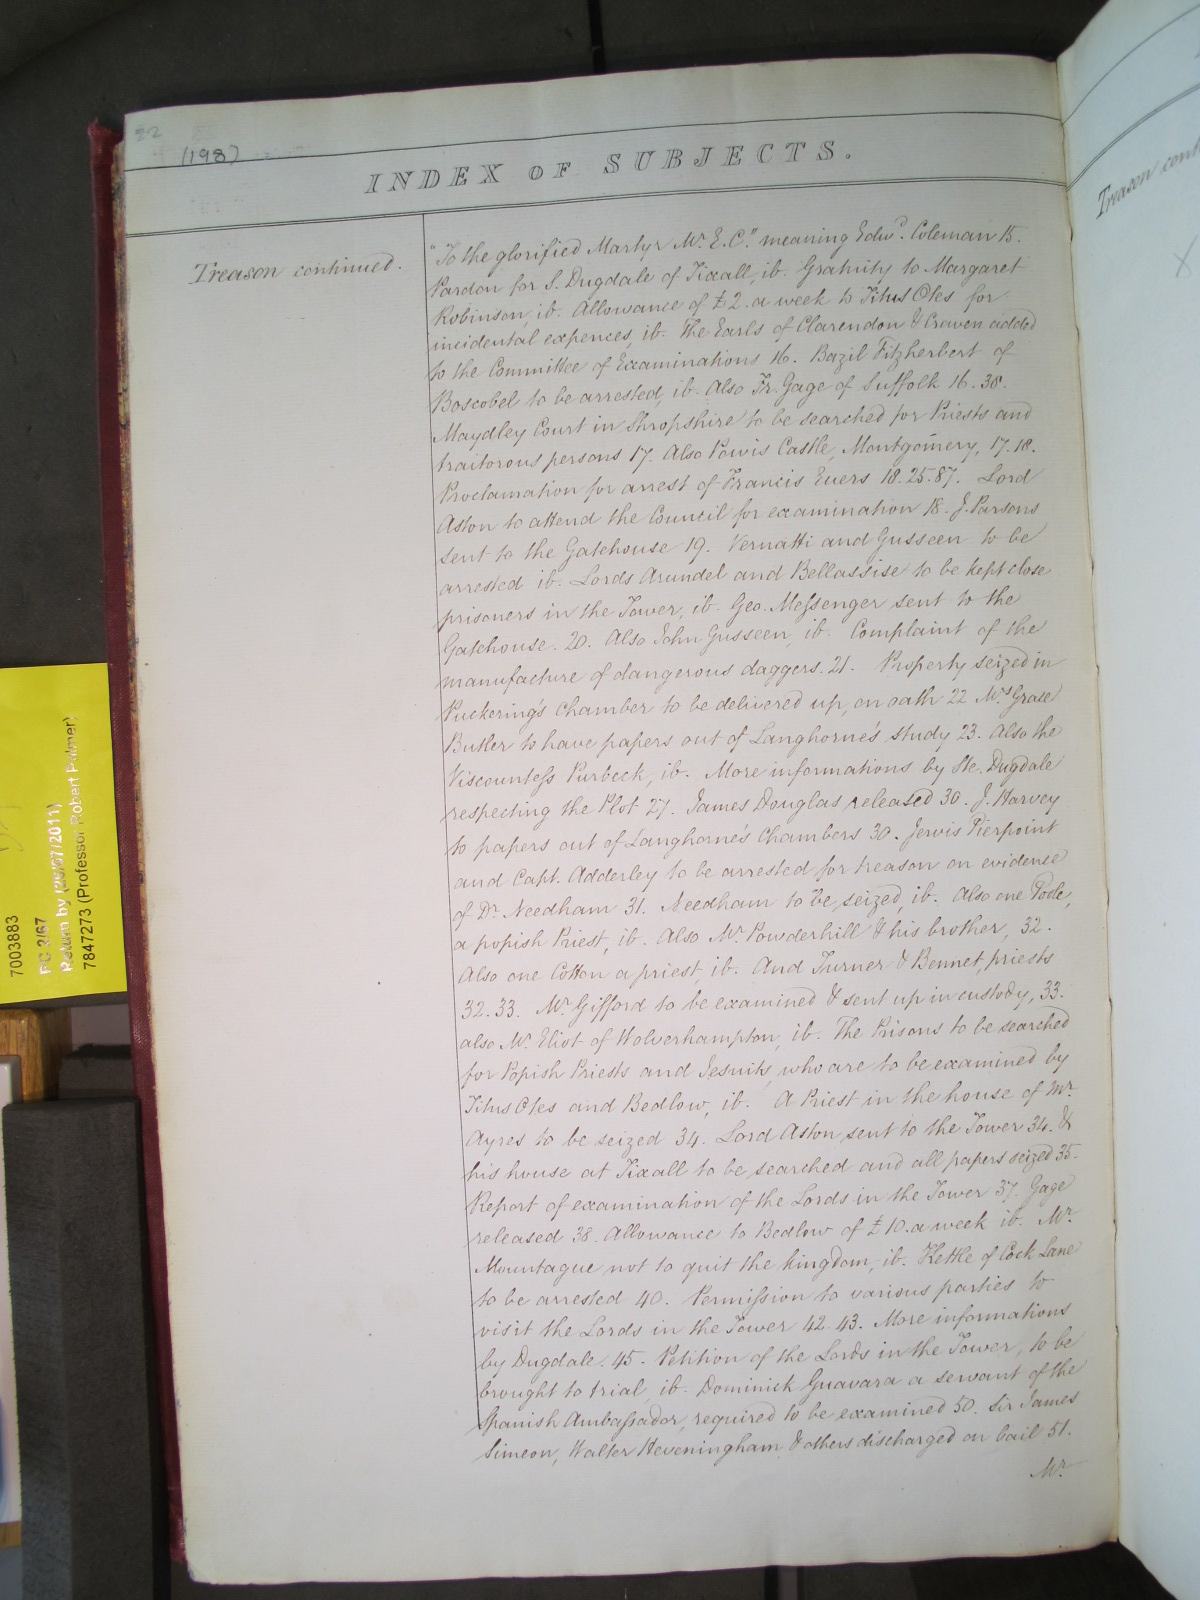 22
(198)
INDEX OF SUBJECTS.
Treason continued.
"To the glorified Martyr Mr. E. C." meaning Edwd. Coleman 15.
Pardon for S. Dugdale of Tixall, ib. Gratuity to Margaret
Robinson, ib. Allowance of £2. a week to Titus Otes for
incidental expences, ib. The Earls of Clarendon & Craven added
to the Committee of Examinations 16. Bazil Fitzherbert of
Boscobel to be arrested, ib. Also Fr. Gage of Suffolk 16. 38.
Maydley Court in Shropshire to be searched for Priests and
traitorous persons 17. Also Powis Castle, Montgomery, 17. 18.
Proclamation for arrest of Francis Euers 18. 25. 87. Lord
Aston to attend the Council for examination 18. J. Parsons
sent to the Gatehouse 19. Vernatti and Gusseen to be
arrested ib. Lords Arundel and Bellassise to be kept close
prisoners in the Tower, ib. Geo. Messenger sent to the
Gatehouse. 20. Also John Gusseen, ib. Complaint of the
manufacture of dangerous daggers. 21. Property seized in
Puckering's Chamber to be delivered up, on oath 22 Mrs Grace
Butler to have papers out of Langhorne's study 23. Also the
Viscountess Purbeck, ib. More informations by Ste. Dugdale
respecting the Plot 27. James Douglas released 30. J. Harvey
to papers out of Langhorne's Chambers 30. Jervis Pierpoint
and Capt. Adderley to be arrested for treason on evidence
of Dr. Needham 31. Needham to be seized, ib. Also one Poole,
a popish Priest, ib. Also Mr. Powderhill & his brother, 32.
Also one Cotton a priest, ib. And Turner & Bennet, priests
32. 33. Mr. Gifford to be examined & sent up in custody, 33.
also Mr. Eliot of Wolverhampton, ib. The Prisons to be searched
for Popish Priests and Jesuits, who are to be examined by
Titus Otes and Bedlow, ib. A Priest in the house of Mr.
Ayres to be seized 34. Lord Aston sent to the Tower 34. &
his house at Tixall to be searched and all papers seized 35.
Report of examination of the Lords in the Tower 37. Gage
released 38. Allowance to Bedlow of £10. a week ib. Mr.
Mountague not to quit the kingdom, ib. Kettle of Cock Lane
to be arrested 40. Permission to various parties to
visit the Lords in the Tower 42. 43. More informations
by Dugdale. 45. Petition of the Lords in the Tower, to be
brought to trial, ib. Dominick Guavara a servant of the
Spanish Ambassador, required to be examined 50. Sir James
Simeon, Walter Heveningham & others discharged on bail 51.
Mr.
Treason cont
7003883
PC 2/67
Return by (26/07/2011)
7847273 (Professor Robert Palmer)